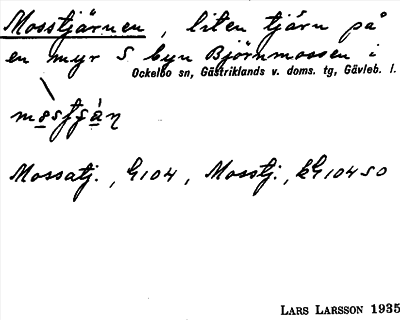 Mosstjärnen, liten tjärn på
en myr S byn Björnmossen i
Ockelbo sn, Gästriklands v. doms. tg, Gävleb. l.
Mossatj., G104, Mosstj., kG104SO
LARS LARSSON 1935